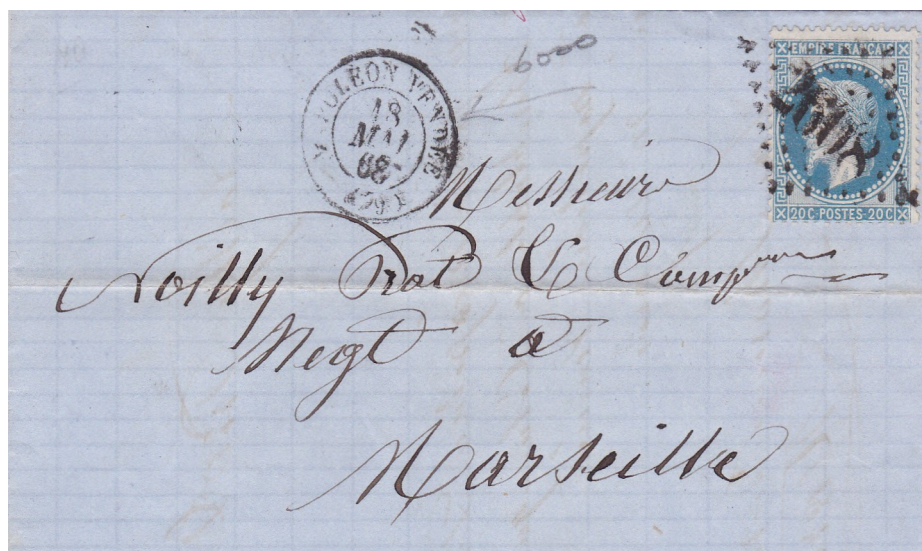 6000
NAPOLEON VENDEE
18
MAI
68
(79)
EMPIRE FRANCAIS
20 C-POSTES-20 C
Messieurs
Noilly Prat & Comp
Negt à
Marseille